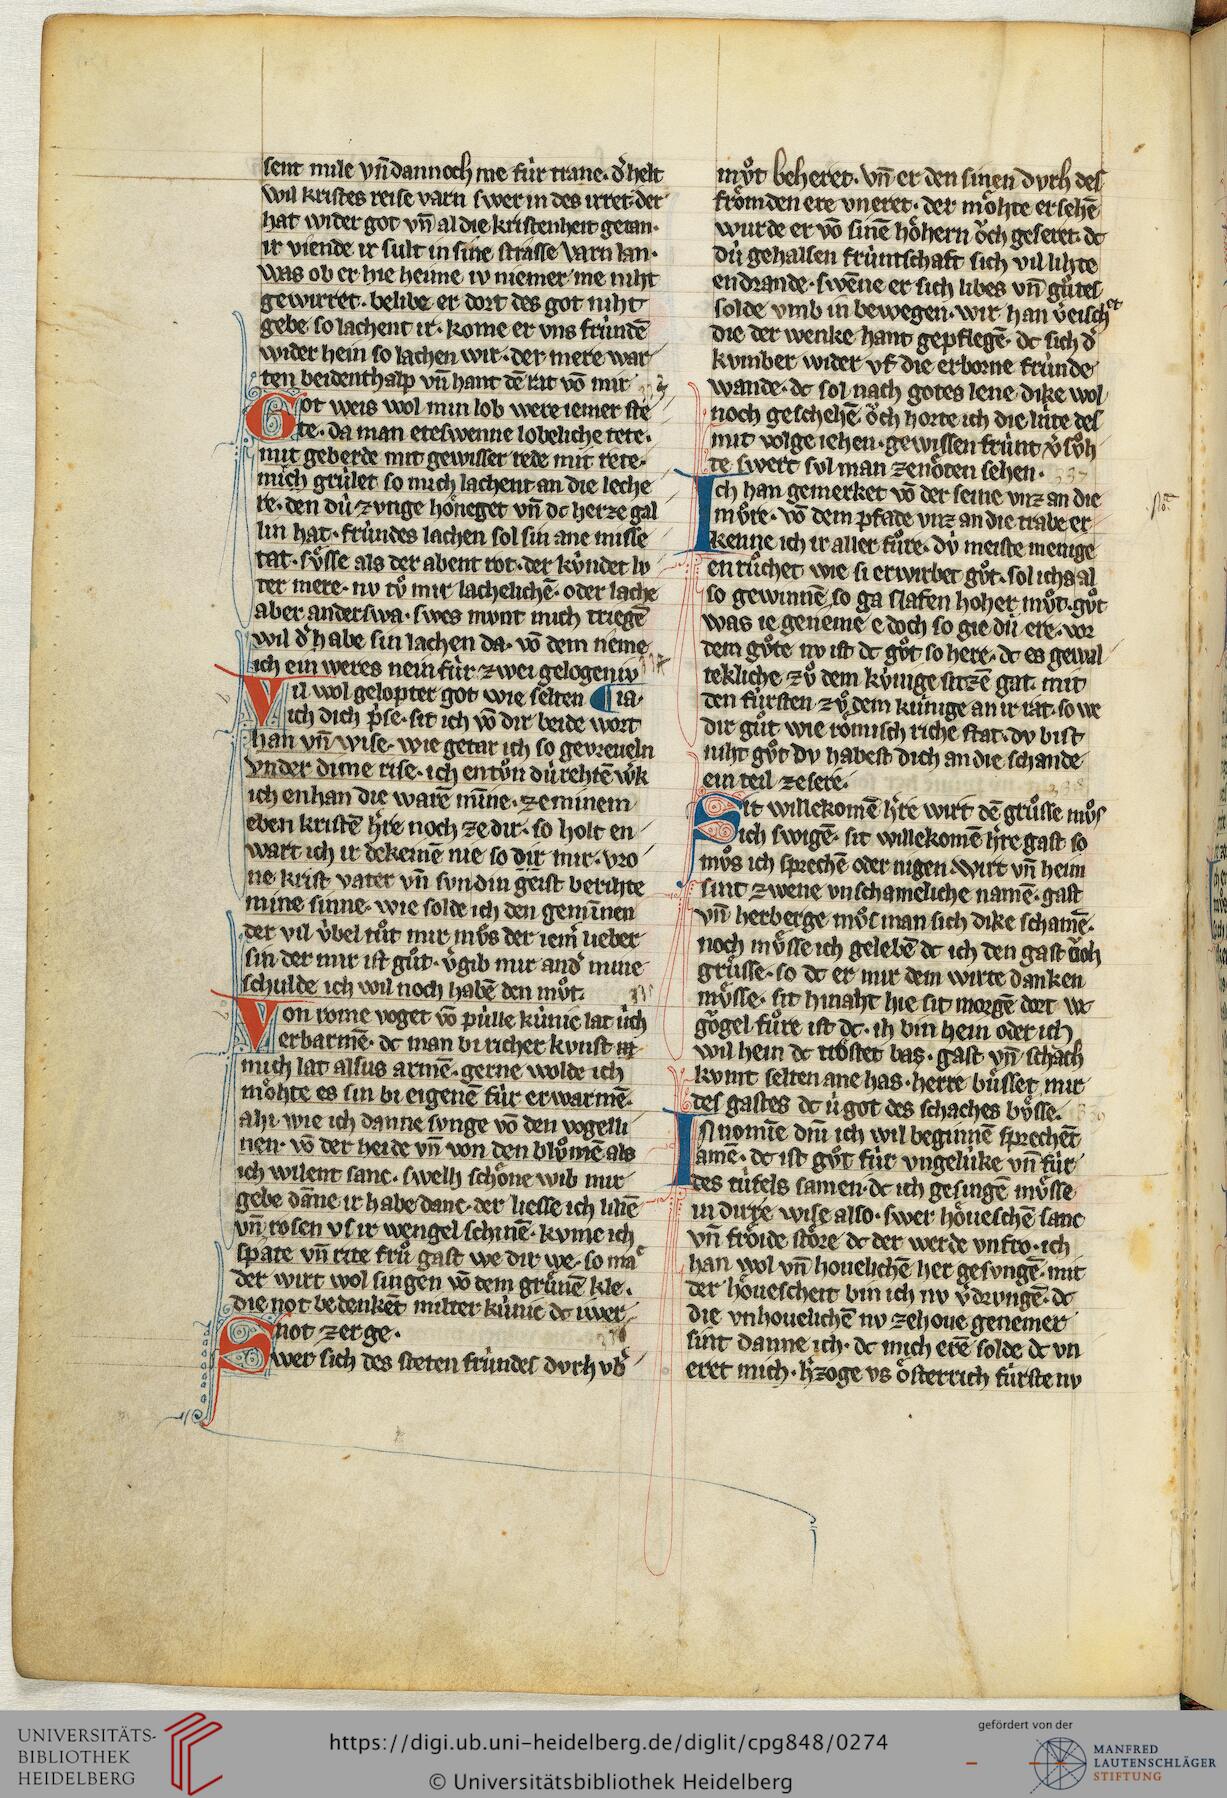 sent mile vn̄ dannoch me fúr trane· d' helt
wil kristes reise varn swer in des irret· der
hat wider got vn̄ al die kristenheit getan·
ir viende ir sult in sine strasse varn lan·
was ob er hie heime iv niemer me niht
gewirret· belibe er dort des got niht
gebe so lachent ir· kome er vns frúndē
wider hein so lachen wir· der mere war
ten beidenthalp vn̄ hant dē rat vō mir
Got weis wol min lob were iemer ste
te· da man eteswenne lobeliche tete·
mit geberde mit gewisser rede mit rete·
mich grúlet so mich lachent an die leche
re· den dú zvnge hōneget vn̄ dc herze gal
lin hat· frúndes lachen sol sin ane misse
tat· sv̊sse als der abent rot· der kv́ndet lv
ter mere· nv tv̊ mir lachelichē· oder lache
aber anderswa· swes mvnt mich triegē
wil d' habe sin lachen da· vō dem neme
ich ein weres nein fúr zwei gelogeniv
Vil wol gelopter got wie selten ¶ ia·
ich dich p̄se· sit ich vō dir beide wort
han vn̄ wise· wie getar ich so gevreueln
vnder dime rise· ich entv̊n dú rehtē w̄k
ich enhan die warē mīne· ze minem
eben kristē h̄re noch ze dir· so holt en
wart ich ir dekeinē nie so dir mir· vro
ne krist vater vn̄ svn din geist berihte
mine sinne· wie solde ich den geminnen
der vil v́bel tůt mir mv̊s der iem̄ lieber
sin der mir ist gůt· v̄gib mir and' mine
schulde ich wil noch habē den mv̊t·
Von rome voget vō púlle kúnic lat úch
erbarmē· dc man bi richer kvnst
mich lat alsus armē· gerne wolde ich
mohte es sin bi eigenē fúr erwarmē·
ahi wie ich danne svnge vō den vogelli
nen· vō der heide vn̄ von den blv̊mē als
ich wilent sanc· swelh schōne wib mir
gebe dāne ir habedanc· der liesse ich liliē
vn̄ rosen vs ir wengel schinē· kvme ich
spate vn̄ rite frů gast we dir we· so mac
der wirt wol singen vō dem grúnē kle·
die not bedenkēt milter kúnic dc úwer
not zerge·
Swer sich des steten frúndes dvrh vb'
mv̊t beheret· vn̄ er den sinen dvrh des
frōmden ere vneret· der mōhte er sehē
wurde er vō sinē hōhern ōch geseret· dc
dú gehalsen frúntschaft sich vil lihte
endrande· swēne er sich libes vn̄ gůtes
solde vmb in bewegen· wir han v̄eischet
die der wenke hant gepflegē· dc sich d'
kvmber wider vf die erborne frúnde
wande· dc sol nach gotes lene dike wol
noch geschehē· ōch horte ich die lúte des
mit volge iehen· gewissen frúnt v̄sv̊h
te swert svl man ze nōten sehen·
Ich han gemerket vō der seine vnz an die
mv̊re· vō dem pfade vnz an die trabe er
kenne ich ir aller fůre· dú meiste menige
en růchet wie si erwirbet gůt· sol ichs al
so gewinnē so ga slafen hoher mv̊t· gůt
was ie geneme e doch so gie dú ere· vor
dem gůte nv ist dc gůt so here· dc es gewal
tekliche zů dem kv́nige sitzē gat· mit
den fúrsten zů dem kúnige an ir rat· so we
dir gůt wie rōmisch riche stat· dv bist
niht gůt dv habest dich an die schande
ein teil ze sere·
Sit willekomē h̄re wirt dē grůsse mv̊s
ich swigē· sit willekomē h̄re gast so
mv̊s ich sprechē oder nigen· wirt vn̄ hein
sint zwene vnschameliche namē· gast
vn̄ herberge mv̊s man sich dike schamē·
noch mv̊sse ich gelebē dc ich den gast ōch
grůsse· so dc er mir dem wirte danken
mv̊sse· sit hinaht hie sit morgē dort w
gōgel fůre ist dc· ih bin hein oder ich
wil hein dc trōstet bas· gast vn̄ schach
kvmt selten ane has· herre bůsset mir
des gastes dc ú got des schaches bv̊sse·
In nomine dm̄ ich wil beginnē sprechēt
amē· dc ist gůt fúr vngelúke vn̄ fúr
des túfels samen· dc ich gesingē mv̊sse
in dirre wise also· swer hōueschē sanc
vn̄ frōide stōre dc der werde vnfro· ich
han wol vn̄ houelichē her gesvngē· mit
der hōuescheit bin ich nv v̄drvngē· dc
die vnhouelichē nv ze houe genemer
sint danne ich· dc mich erē solde dc vn
eret mich· h̄zoge vs ōsterrich fúrste nv
UNIVERSITÄTS-
BIBLIOTHEK
HEIDELBERG
https://digi.ub.uni-heidelberg.de/diglit/cpg848/0274
© Universitätsbibliothek Heidelberg
gefördert von der
MANFRED
LAUTENSCHLÄGER
STIFTUNG